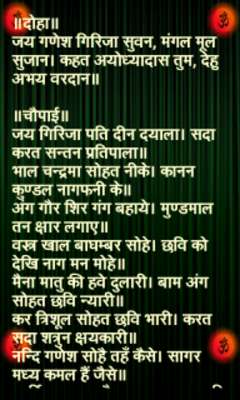 ॥दोहा॥
जय गणेश गिरिजा सुवन, मंगल मूल
सुजान। कहत अयोध्यादास तुम, देहु
अभय वरदान॥
॥चौपाई॥
जय गिरिजा पति दीन दयाला। सदा
करत सन्तन प्रतिपाला॥
भाल चन्द्रमा सोहत नीके। कानन
कुण्डल नागफनी के॥
अंग गौर शिर गंग बहाये। मुण्डमाल
तन क्षार लगाए॥
वस्त्र खाल बाघम्बर सोहे। छवि को
देखि नाग मन मोहे॥
मैना मातु की हवे दुलारी। बाम अंग
सोहत छवि न्यारी॥
कर त्रिशूल सोहत छवि भारी। करत
सदा शत्रुन क्षयकारी॥
नन्दि गणेश सोहै तहँ कैसे। सागर
मध्य कमल हैं जैसे॥